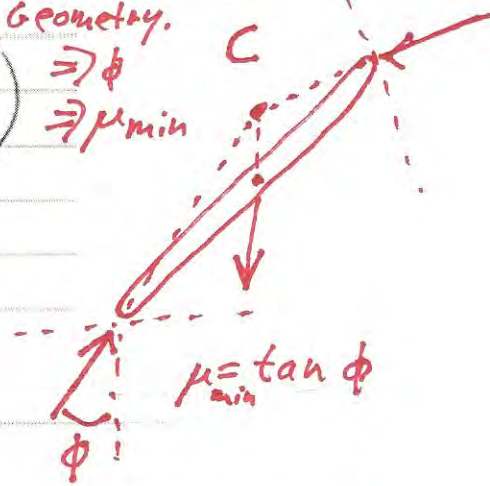 Geometry.
⇒ ϕ
⇒ μmin
C
μmin = tan ϕ
ϕ